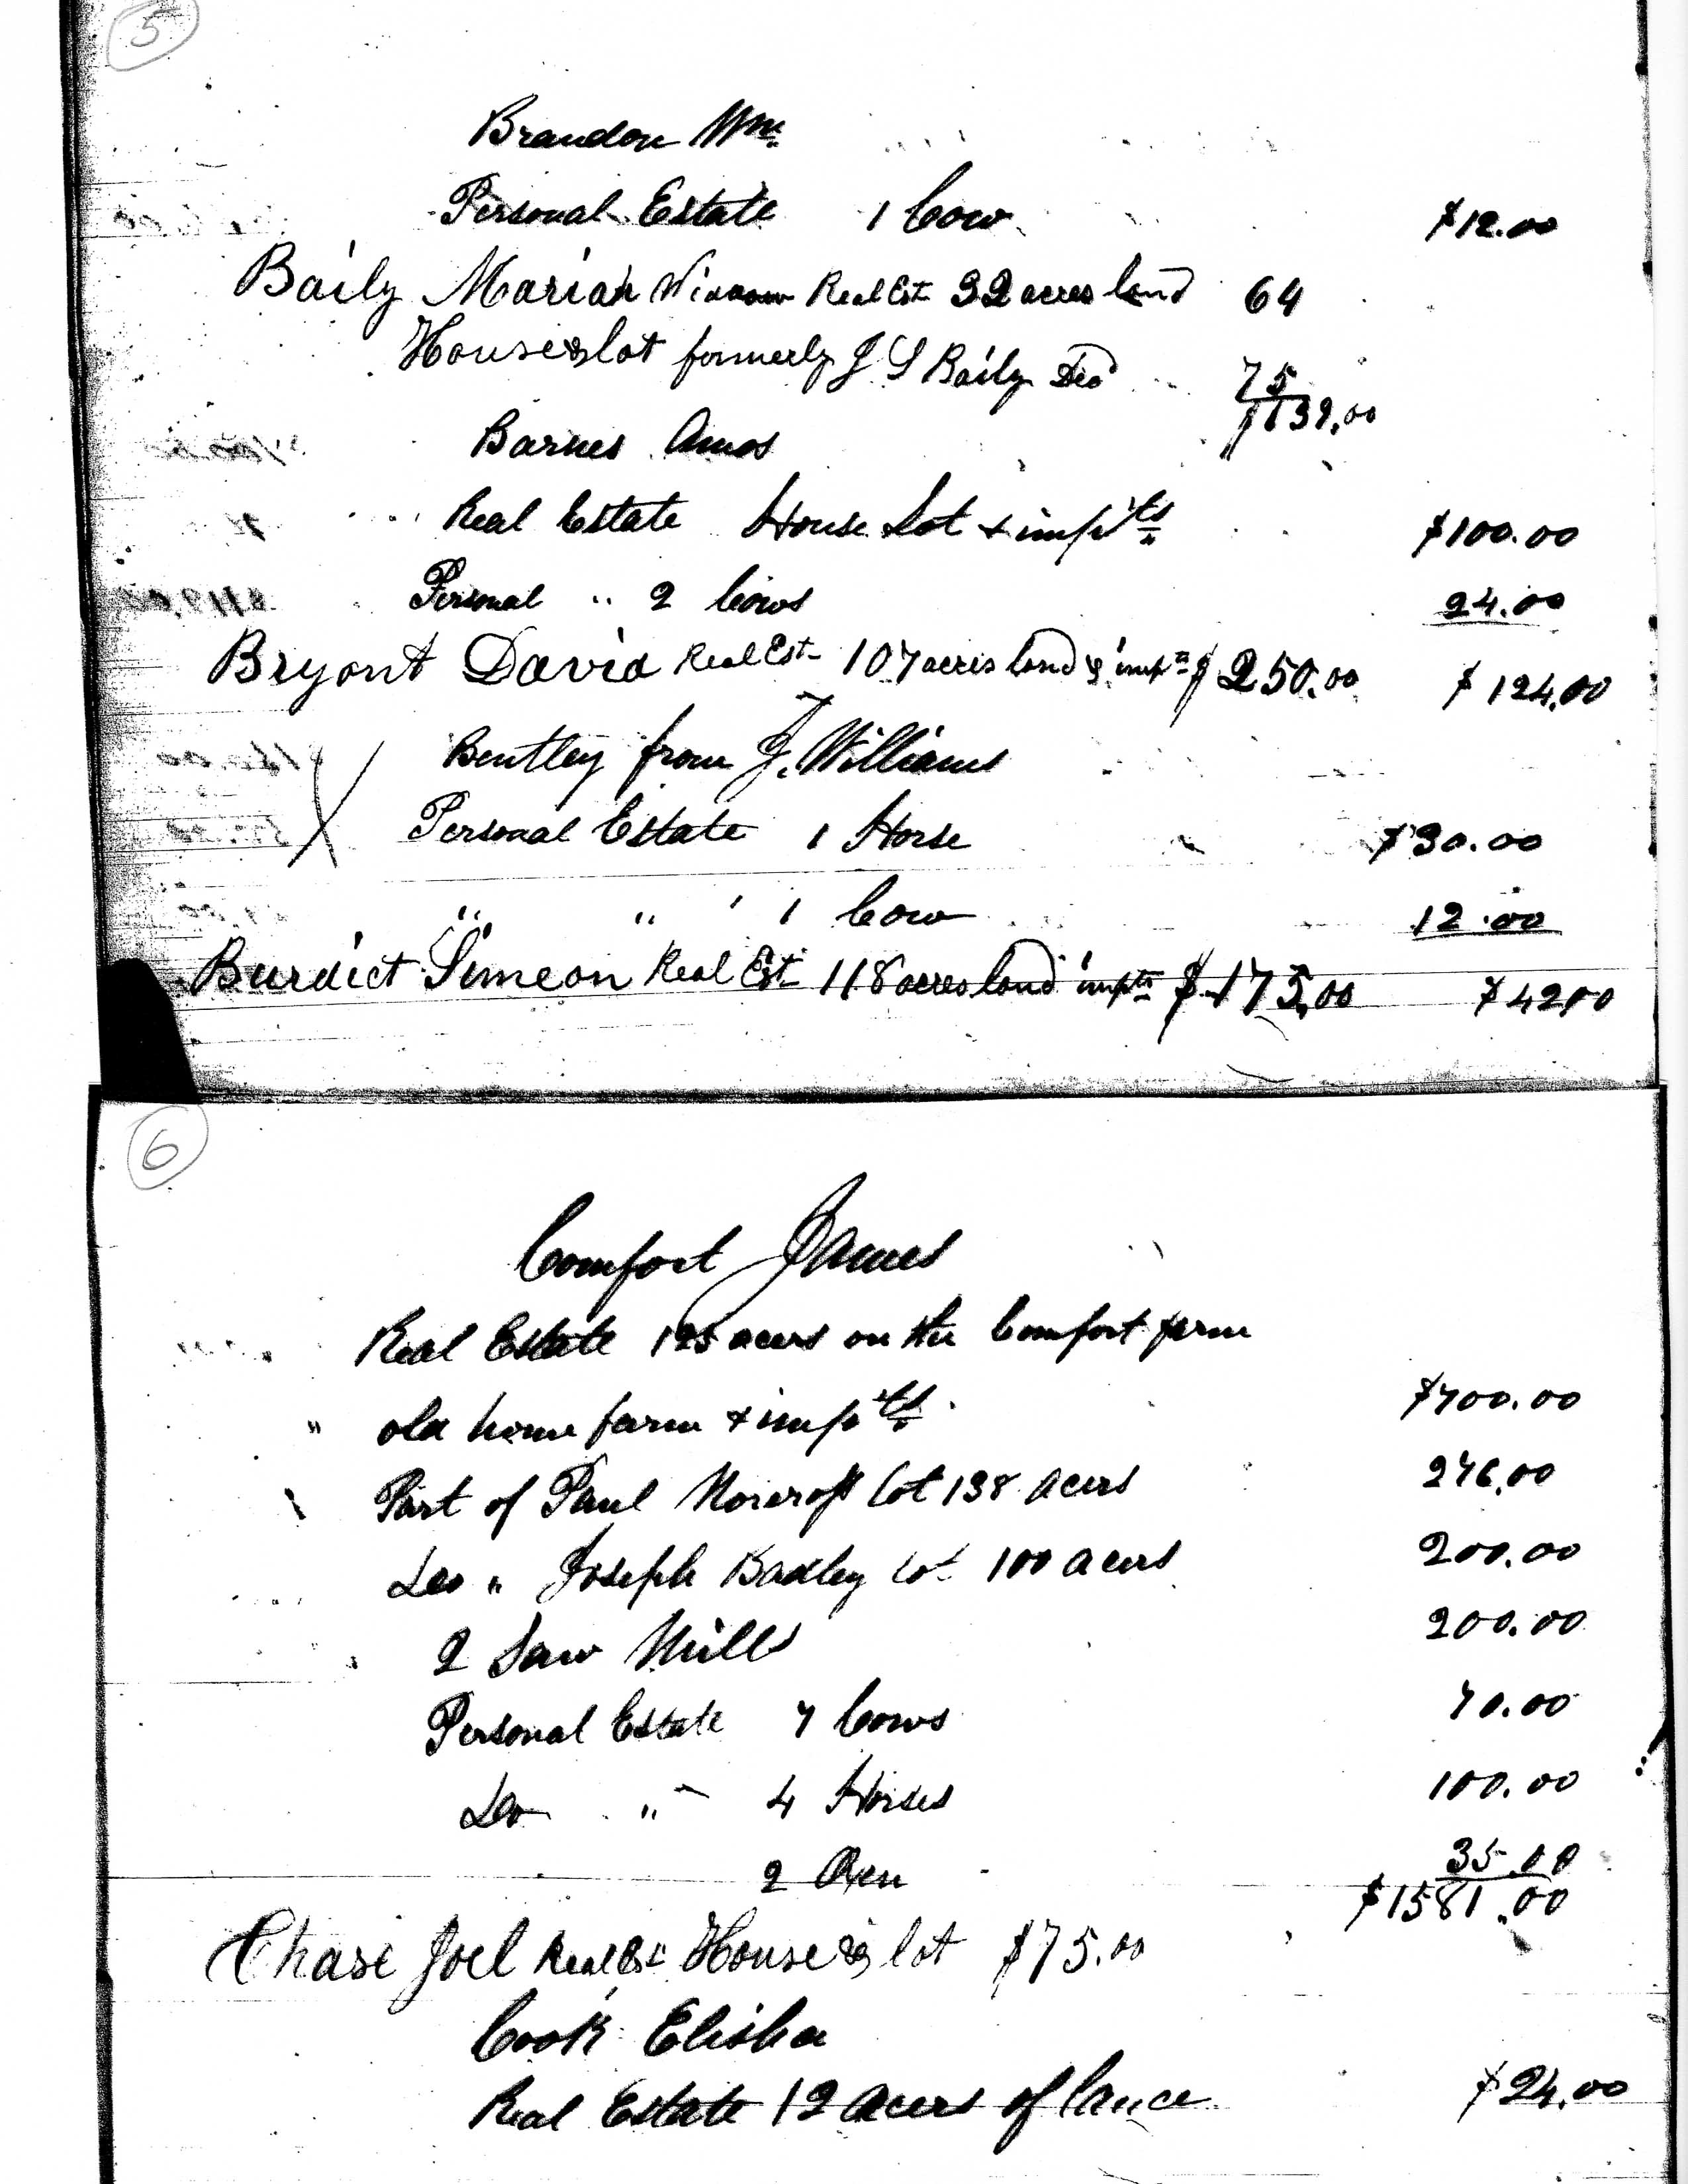 5
Brandon Wm
Personal Estate 1 Cow $12.00
Baily Mariah Widdow Real Est 32 acres land 64
House & lot formerly J S Baily Decd 75
$139.00
Barnes Amos
Real Estate House Lot & imp'ts $100.00
Personal " 2 Cows 24.00
Bryant David Real Est 107 acres land & impts $250.00 $124.00
Bentley from J. Williams
Personal Estate 1 Horse $30.00
" " 1 Cow 12.00
Burdict Simeon Real Est 118 acres land impts $175.00 $42.00
6
Comfort James
Real Estate 125 acers on the Comfort farm
" old home farm & imp'ts $700.00
Part of Paul lot 138 acers 276.00
Do " Joseph Baxley lot 100 acers 200.00
2 Saw Mills 200.00
Personal Estate 7 Cows 70.00
Do " 4 Horses 100.00
2 Oxen 35.00
$1581.00
Chase Joel Real Est House & lot $75.00
Cook Elisha
Real Estate 12 acers of $24.00